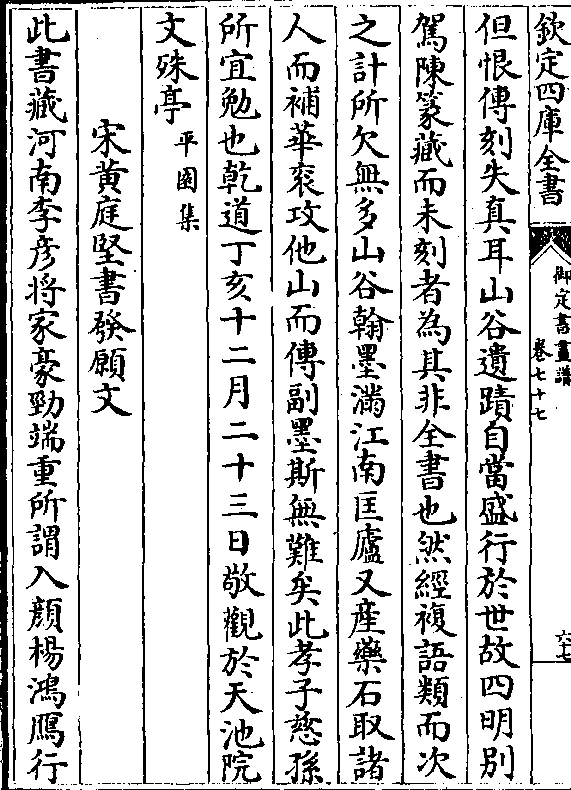 欽定四庫全書
御定書畫譜
卷七十七
六十七
但恨傳刻失真耳山谷遺蹟自當盛行於世故四明别
駕陳篆藏而未刻者為其非全書也然經複語類而次
之計所欠無多山谷翰墨滿江南匡廬又産樂石取諸
人而補華衮攻他山而傳副墨斯無難矣此孝子慈孫
所宜勉也乾道丁亥十二月二十三日敬觀於天池院
文殊亭平園集
宋黄庭堅書發願文
此書藏河南李彦將家豪勁端重所謂入顔楊鴻鴈行